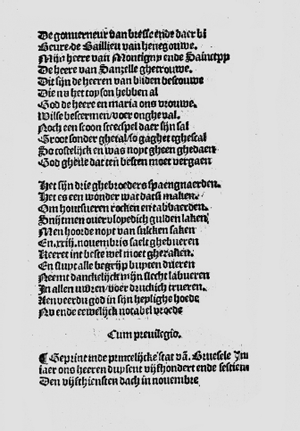 De gouuerneur van bresse ende daer bi
Heure de Gaillieu van henegouwe.
Mijn heere van Montigny ende Sainctpp
De heere van Sanzelle ghetrouwe.
Dit sijn de heeren van binden bescouwe
Die nv het toyson hebben al
God de heere en maria ons vrouwe.
Wilse bescermen voer ongheval.
Noch een scoon steecspel daer sijn sal
Groot sonder ghetal so gaghet ghescal
So costelijck en was noyt gheen ghedaen
God gheue dat ten besten moet vergaen
Het sijn drie ghebroeders spaengnaerden.
Het es een wonder wat datsi maken.
Om houtsueren rocken en tabbaerden.
Snijtmen ouervlopedich gulden laken
Men hoorde noyt van sulcken saken
En .xiij. nouembris saelt ghebueren
Keeret int beste wel moet gheraken.
En sluyt alle begrijp buyten dueren
Neemt danckelijck mijn slecht labueren
In allen vren voer druckich trueren.
Aenveerdu god in sijn heylighe hoede
Nv ende eewelijck notabel vroede
Cum preuilegio.
¶ Geprint inde princelijcke stat vā. Bruesele Int
iaer ons heeren duysent vijfhondert ende sestien
Den vijfthiensten dach in nouembre